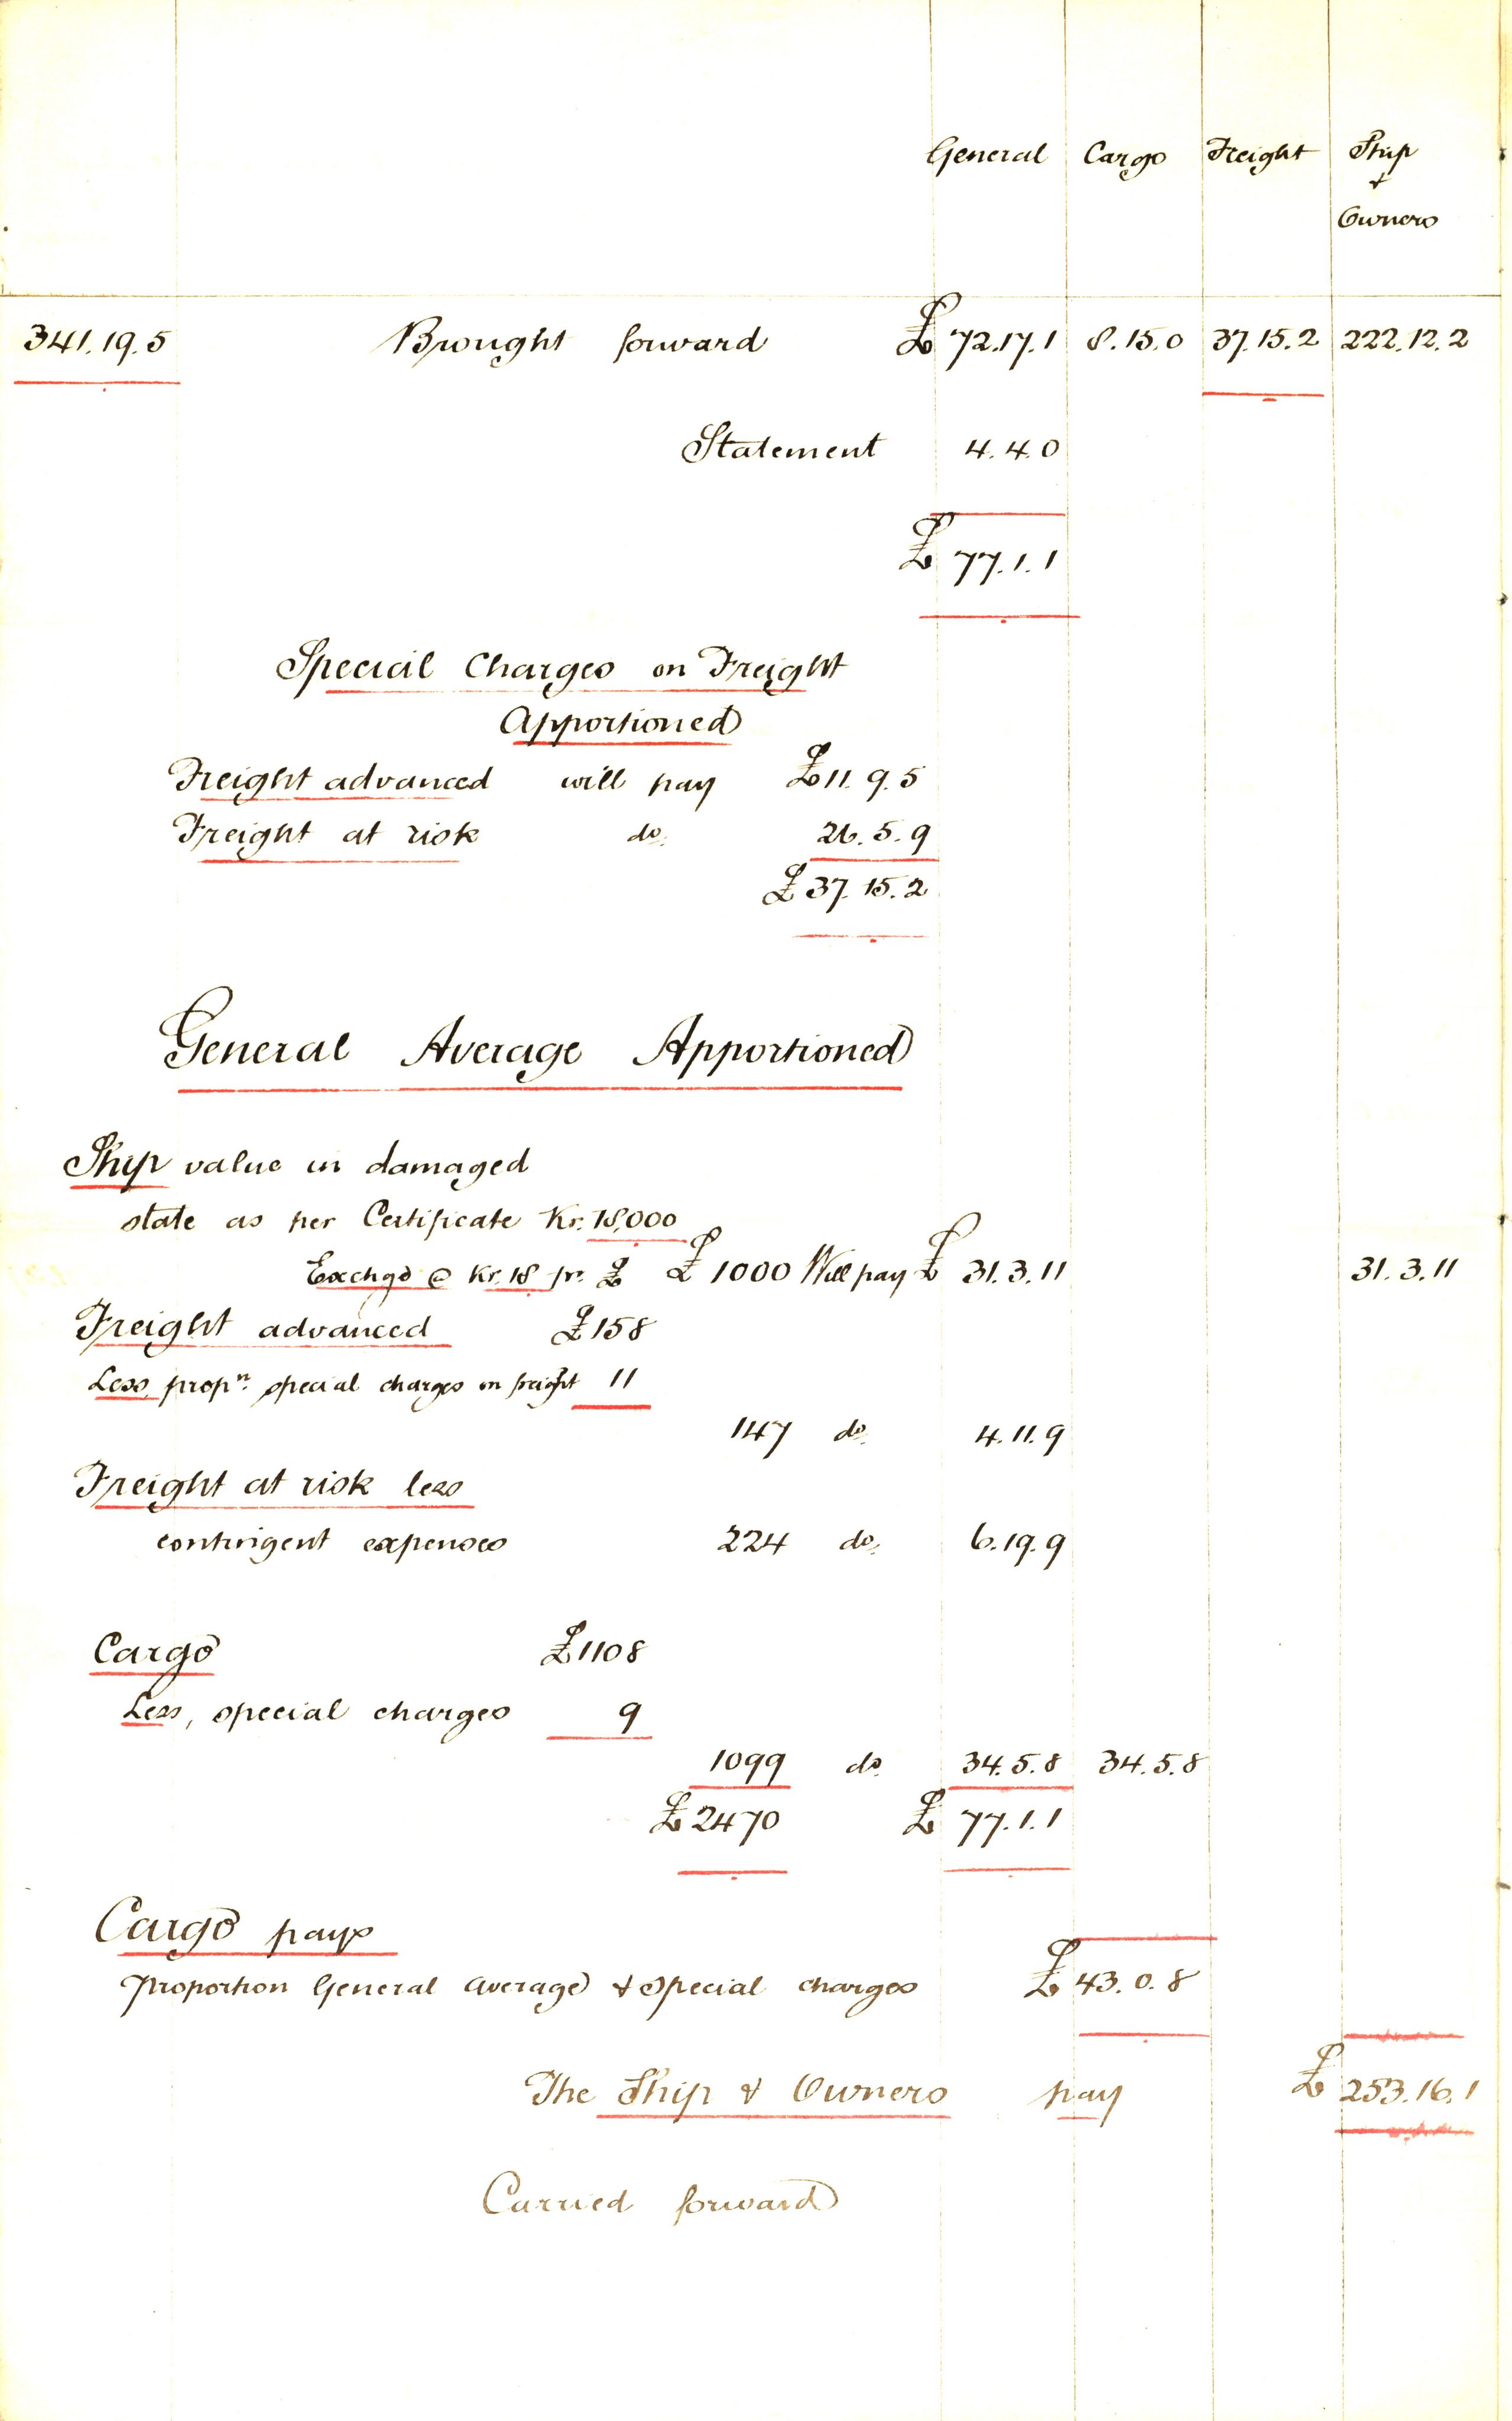 General Cargo Freight Ship
&
Owners
341.19.5 Brought forward £ 72.17.1 8.15.0 37.15.2 222.12.2
Statement 4.4.0
£ 77.1.1
Special Charges on Freight
Apportioned
Freight advanced will pay £11.9.5
Freight at risk do. 26.5.9
£37.15.2
General Average Apportioned
Ship value in damaged
state as per Certificate Kr. 18,000
Exchge @ Kr. 18 pr. £ £ 1000 Will pay £ 31.3.11 31.3.11
Freight advanced £158
Less, propn. special charges on freight 11
147 do. 4.11.9
Freight at risk less
contingent expenses 224 do. 6.19.9
Cargo £1108
Less, special charges 9
1099 do. 34.5.8 34.5.8
£2470 £ 77.1.1
Cargo pays
proportion General Average & Special charges £ 43.0.8
The Ship & Owners pay £ 253.16.1
Carried forward